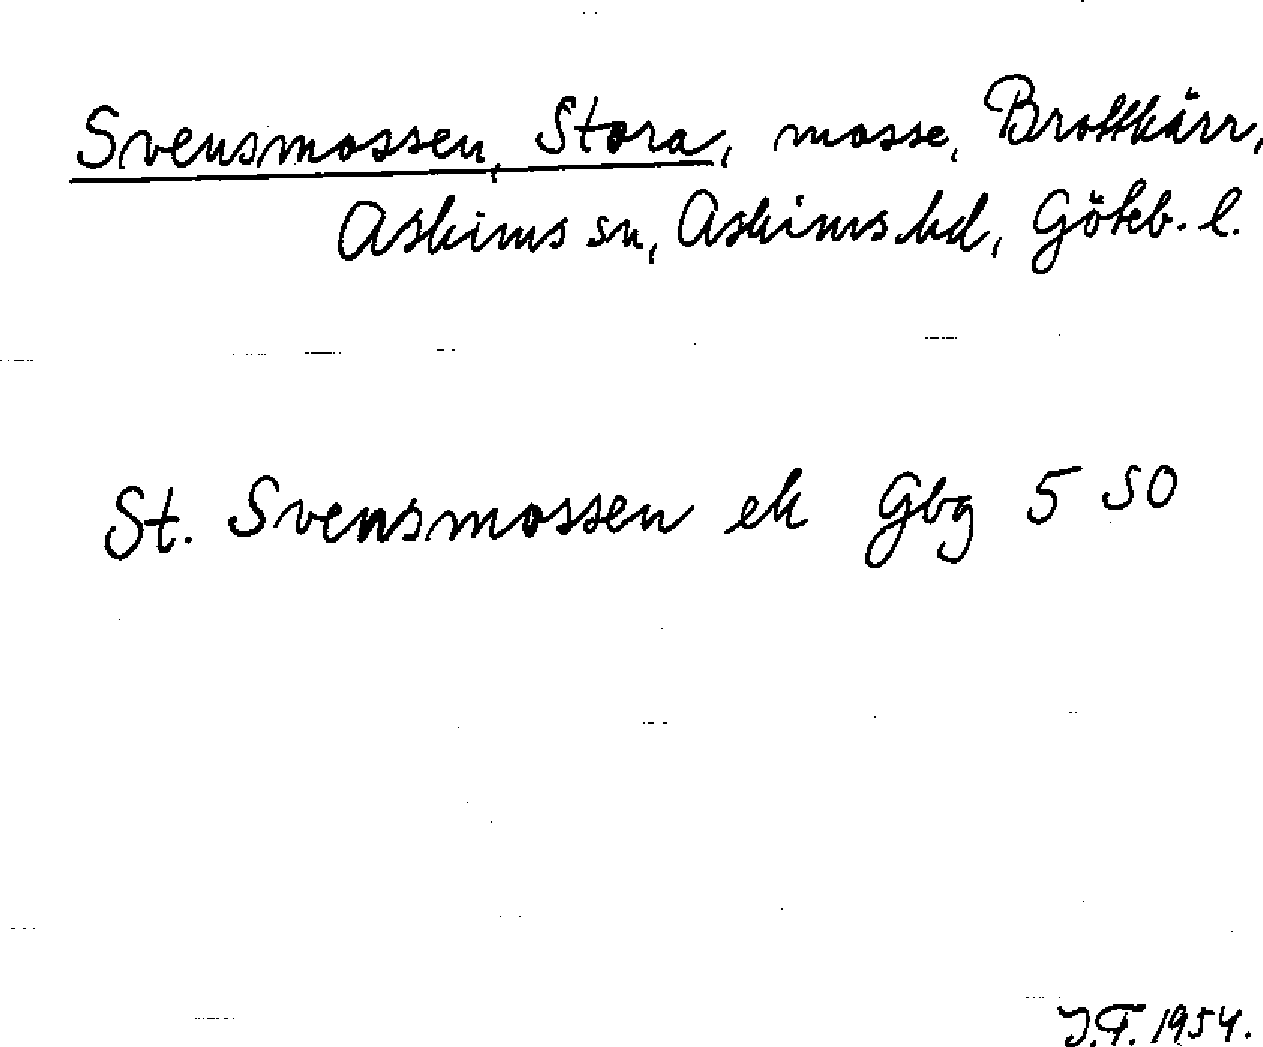 Svensmossen, Stora, mosse, Brottkärr,
Askims sn, Askims hd, Göteb. l.
St. Svensmossen ek Gbg 5 SO
J.F. 1954.